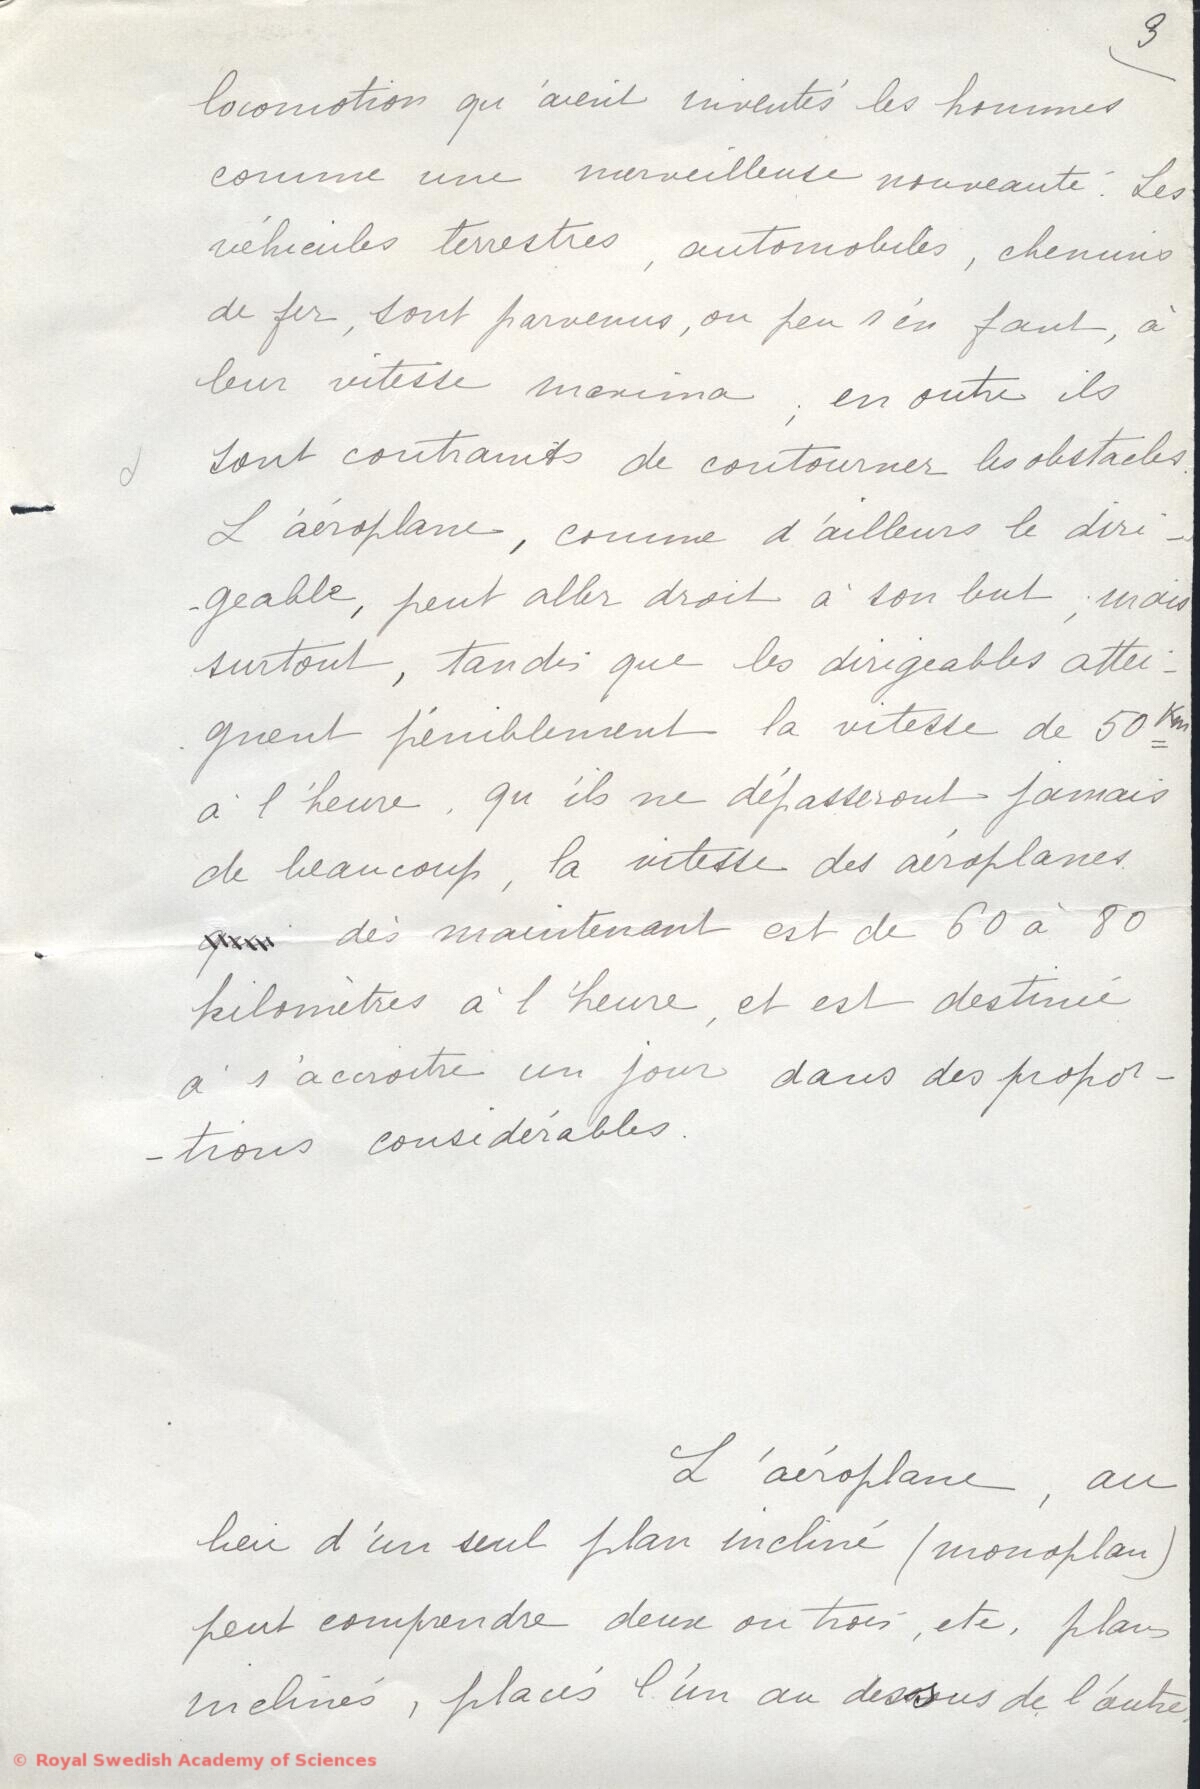 3
locomotion qu'aient inventés les hommes
comme une merveilleuse nouveauté. Les
véhicules terrestres, automobiles, chemins
de fer, sont parvenus, ou peu s'en faut, à
leur vitesse maxima ; en outre ils
sont contraints de contourner les obstacles.
L'aéroplane, comme d'ailleurs le diri-
-geable, peut aller droit à son but ; mais
surtout, tandis que les dirigeables attei-
gnent péniblement la vitesse de 50 Km
à l'heure, qu'ils ne dépasseront jamais
de beaucoup, la vitesse des aéroplanes
dès maintenant est de 60 à 80
kilomètres à l'heure, et est destinée
à s'accroitre un jour dans des propor-
-tions considérables.
L'aéroplane, au
lieu d'un seul plan incliné (monoplan)
peut comprendre deux ou trois, etc. plans
inclinés, placés l'un au dessous de l'autre.
© Royal Swedish Academy of Sciences